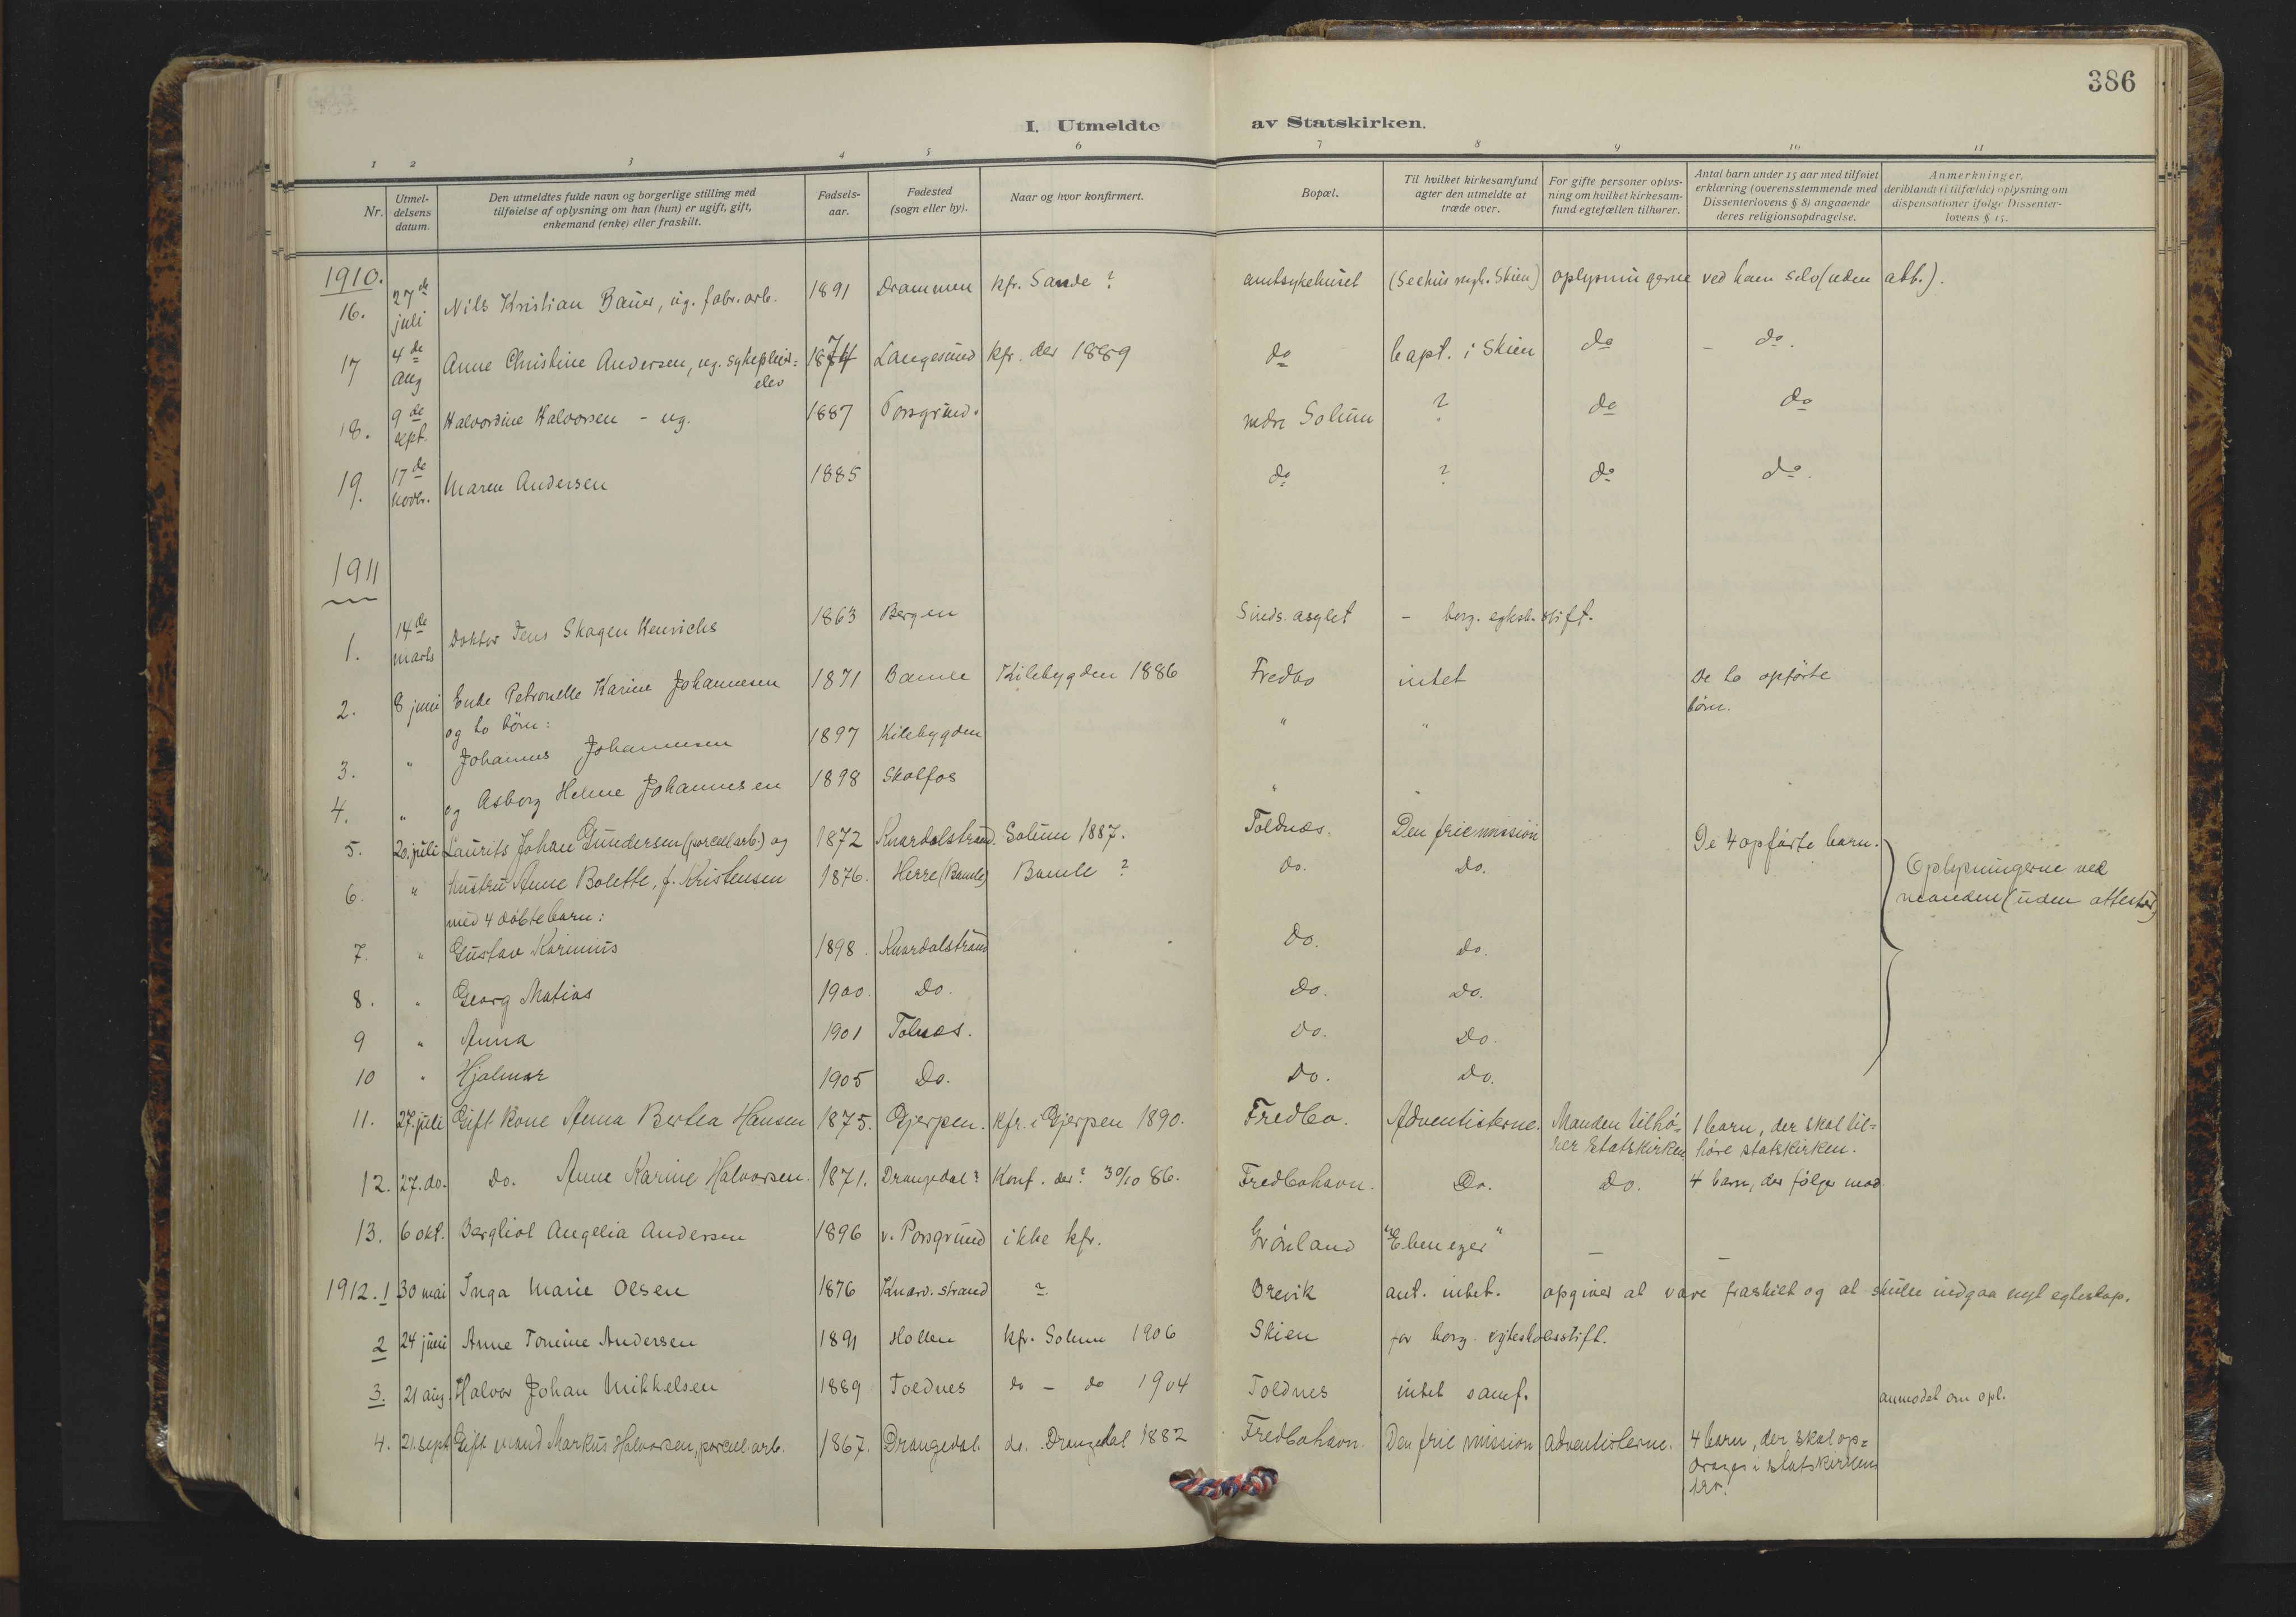 386
I. Utmeldte av Statskirken.
1 2 3 4 5 6 7 8 9 10 11
Nr.
Utmel-
delsens
datum.
Den utmeldtes fulde navn og borgerlige stilling med
tilføielse af oplysning om han (hun) er ugift, gift,
enkemand (enke) eller fraskilt.
Fødsels-
aar.
Fødested
(sogn eller by).
Naar og hvor konfirmert.
Bopæl.
Til hvilket kirkesamfund
agter den utmeldte at
træde over.
For gifte personer oplys-
ning om hvilket kirkesam-
fund egtefællen tilhører.
Antal barn under 15 aar med tilføiet
erklæring (overensstemmende med
Dissenterlovens § 8) angaaende
deres religionsopdragelse.
Anmerkninger,
deriblandt (i tilfælde) oplysning om
dispensationer ifølge Dissenter-
lovens § 15.
1910.
16. 27de juli Nils Kristian Bauer, ug. fabr. arb. 1891 Drammen kfr. Sande ? amtsykehuset (Skien) oplysningerne ved ham selv (uden att.).
17 4de aug Anne Christine Andersen, ug. sykepleier= elev 1874 Langesund kfr. der 1889 do bapt. i Skien do - do.
18. 9de sept. Halvordine Halvorsen - ug. 1887 Porsgrund. nedre Solum ? do do
19. 17de novbr. Maren Andersen 1885 do ? do do.
1911
1. 14de marts Doktor Jens Skagen Henrichs 1863 Bergen Sinds. asylet - borg. egtesk. stift.
2. 8 juni Enke Petronelle Karine Johannesen 1871 Bamle Kilebygden 1886 Fredbo intet De to opførte
og to børn: børn.
3. " Johannes Johannesen 1897 Kilebygden " "
4. " og Asborg Helene Johannesen 1898 Skotfos "
5. 20. juli Laurits Johan Gundersen (porcell arb.) og 1872 Knardalstrand. Solum 1887. Toldnæs. Den frie mission De 4 opførte barn.
6. " hustru Anne Bolette, f. Kristensen 1876. Herre (Bamle) Bamle ? do. do. Oplysningerne ved
med 4 døbte barn: manden (uden attester)
7. " Gustav Karinius 1898. Knardalstrand Do. do.
8. " Georg Matias 1900. Do. Do. do.
9 " Anna 1901 Tolnæs. Do. Do.
10 " Hjalmar 1905 Do. Do. Do.
11. 27. juli Gift kone Anna Bertea Hansen 1875. Gjerpen. kfr. i Gjerpen 1890. Fredbo. Adventisterne. Manden tilhø= 1 barn, der skal til=
rer Statskirken høre statskirken.
12. 27. do. do. Anne Karine Halvorsen. 1871. Drangedal ? Konf. der ? 30/10 86. Fredbohavn. Do. Do. 4 barn, der følge mod.
13. 6 okt. Bergliot Angelia Andersen 1896 v. Porsgrund ikke kfr. Grönland "Ebenezer" - -
1912. 1 30 mai Inga Marie Olsen 1876 Knard. strand ? Brevik ant. intet. opgives at være fraskilt og at skulle indgaa nyt egteskap.
2 24 juni Anne Tomine Andersen 1891 Hollen kfr. Solum 1906 Skien for borg. egteskabsstift.
3. 21 aug. Halvor Johan Mikkelsen 1889 Toldnes do - do 1904 Toldnes intet samf. anmodet om opl.
4. 21. sept. Gift mand Markus Halvorsen, porcell. arb. 1867. Drangedal. do. Drangedal 1882 Fredbohavn. Den frie mission Adventisterne. 4 barn, der skal op=
drages i statskirkens
lær.